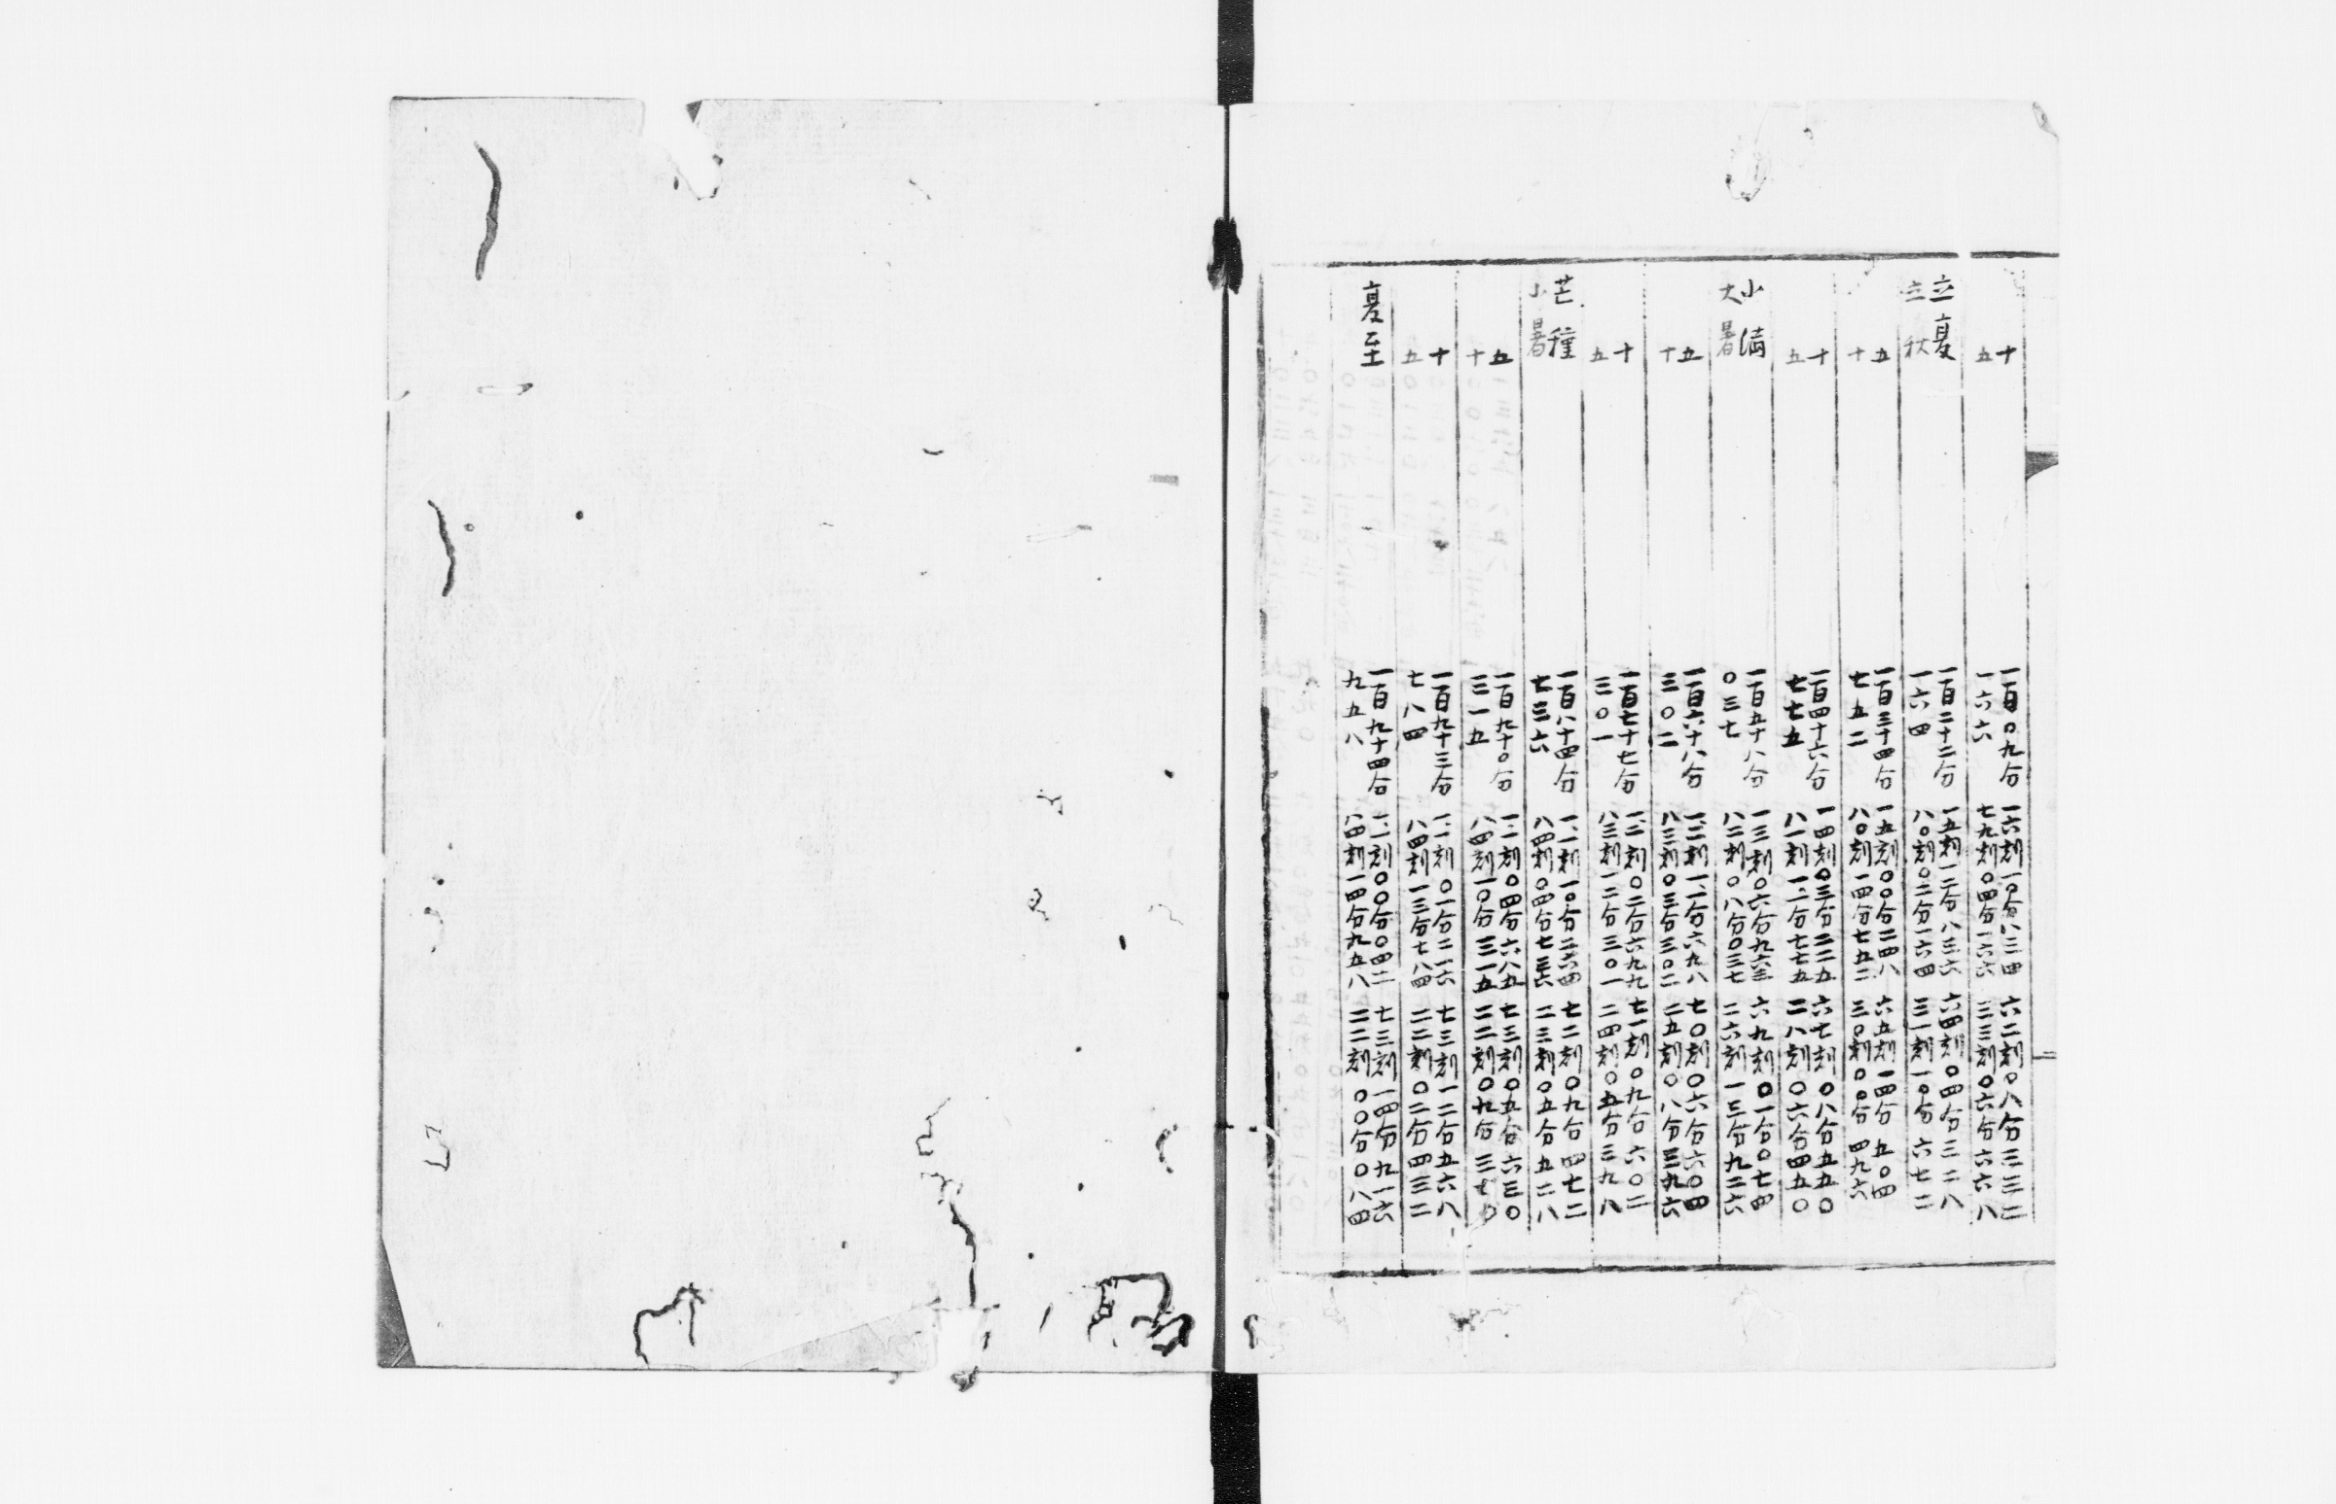 十 一百〇九分 一六刻一〇分八三四 六二刻〇八分三三二
五 一六六 七九刻〇四分一六六 三三刻〇六分六六八
立夏 一百二十二分 一五刻一二分八三六 六四刻〇四分三二八
立秋 一六四 八〇刻〇二分一六四 三一刻一〇分六七二
五 一百三十四分 一五刻〇〇分二四八 六五刻一四分五〇四
十 七五二 八〇刻一四分七五二 三〇刻〇〇分四九六
十 一百四十六分 一四刻〇三分二二五 六七刻〇八分五五〇
五 七七五 八一刻一一分七七五 二八刻〇六分四五〇
小満 一百五十八分 一三刻〇六分九六三 六九刻〇一分〇七四
大暑 〇三七 八二刻〇八分〇三七 二六刻一三分九二六
五 一百六十八分 一二刻一一分六九八 七〇刻〇六分六〇四
十 三〇二 八三刻〇三分三〇二 二五刻〇八分三九六
十 一百七十七分 一二刻〇二分六九九 七一刻〇九分六〇二
五 三〇一 八三刻一二分三〇一 二四刻〇五分三九八
芒種 一百八十四分 一一刻一〇分二六四 七二刻〇九分四七二
小暑 七三六 八四刻〇四分七三六 二三刻〇五分五二八
五 一百九十〇分 一一刻〇四分六八五 七三刻〇五分六三〇
十 三一五 八四刻一〇分三一五 二二刻〇九分三七〇
十 一百九十三分 一一刻〇一分二一六 七三刻一二分五六八
五 七八四 八四刻一三分七八四 二二刻〇二分四三二
夏至 一百九十四分 一一刻〇〇分〇四二 七三刻一四分九一六
九五八 八四刻一四分九五八 二二刻〇〇分〇八四